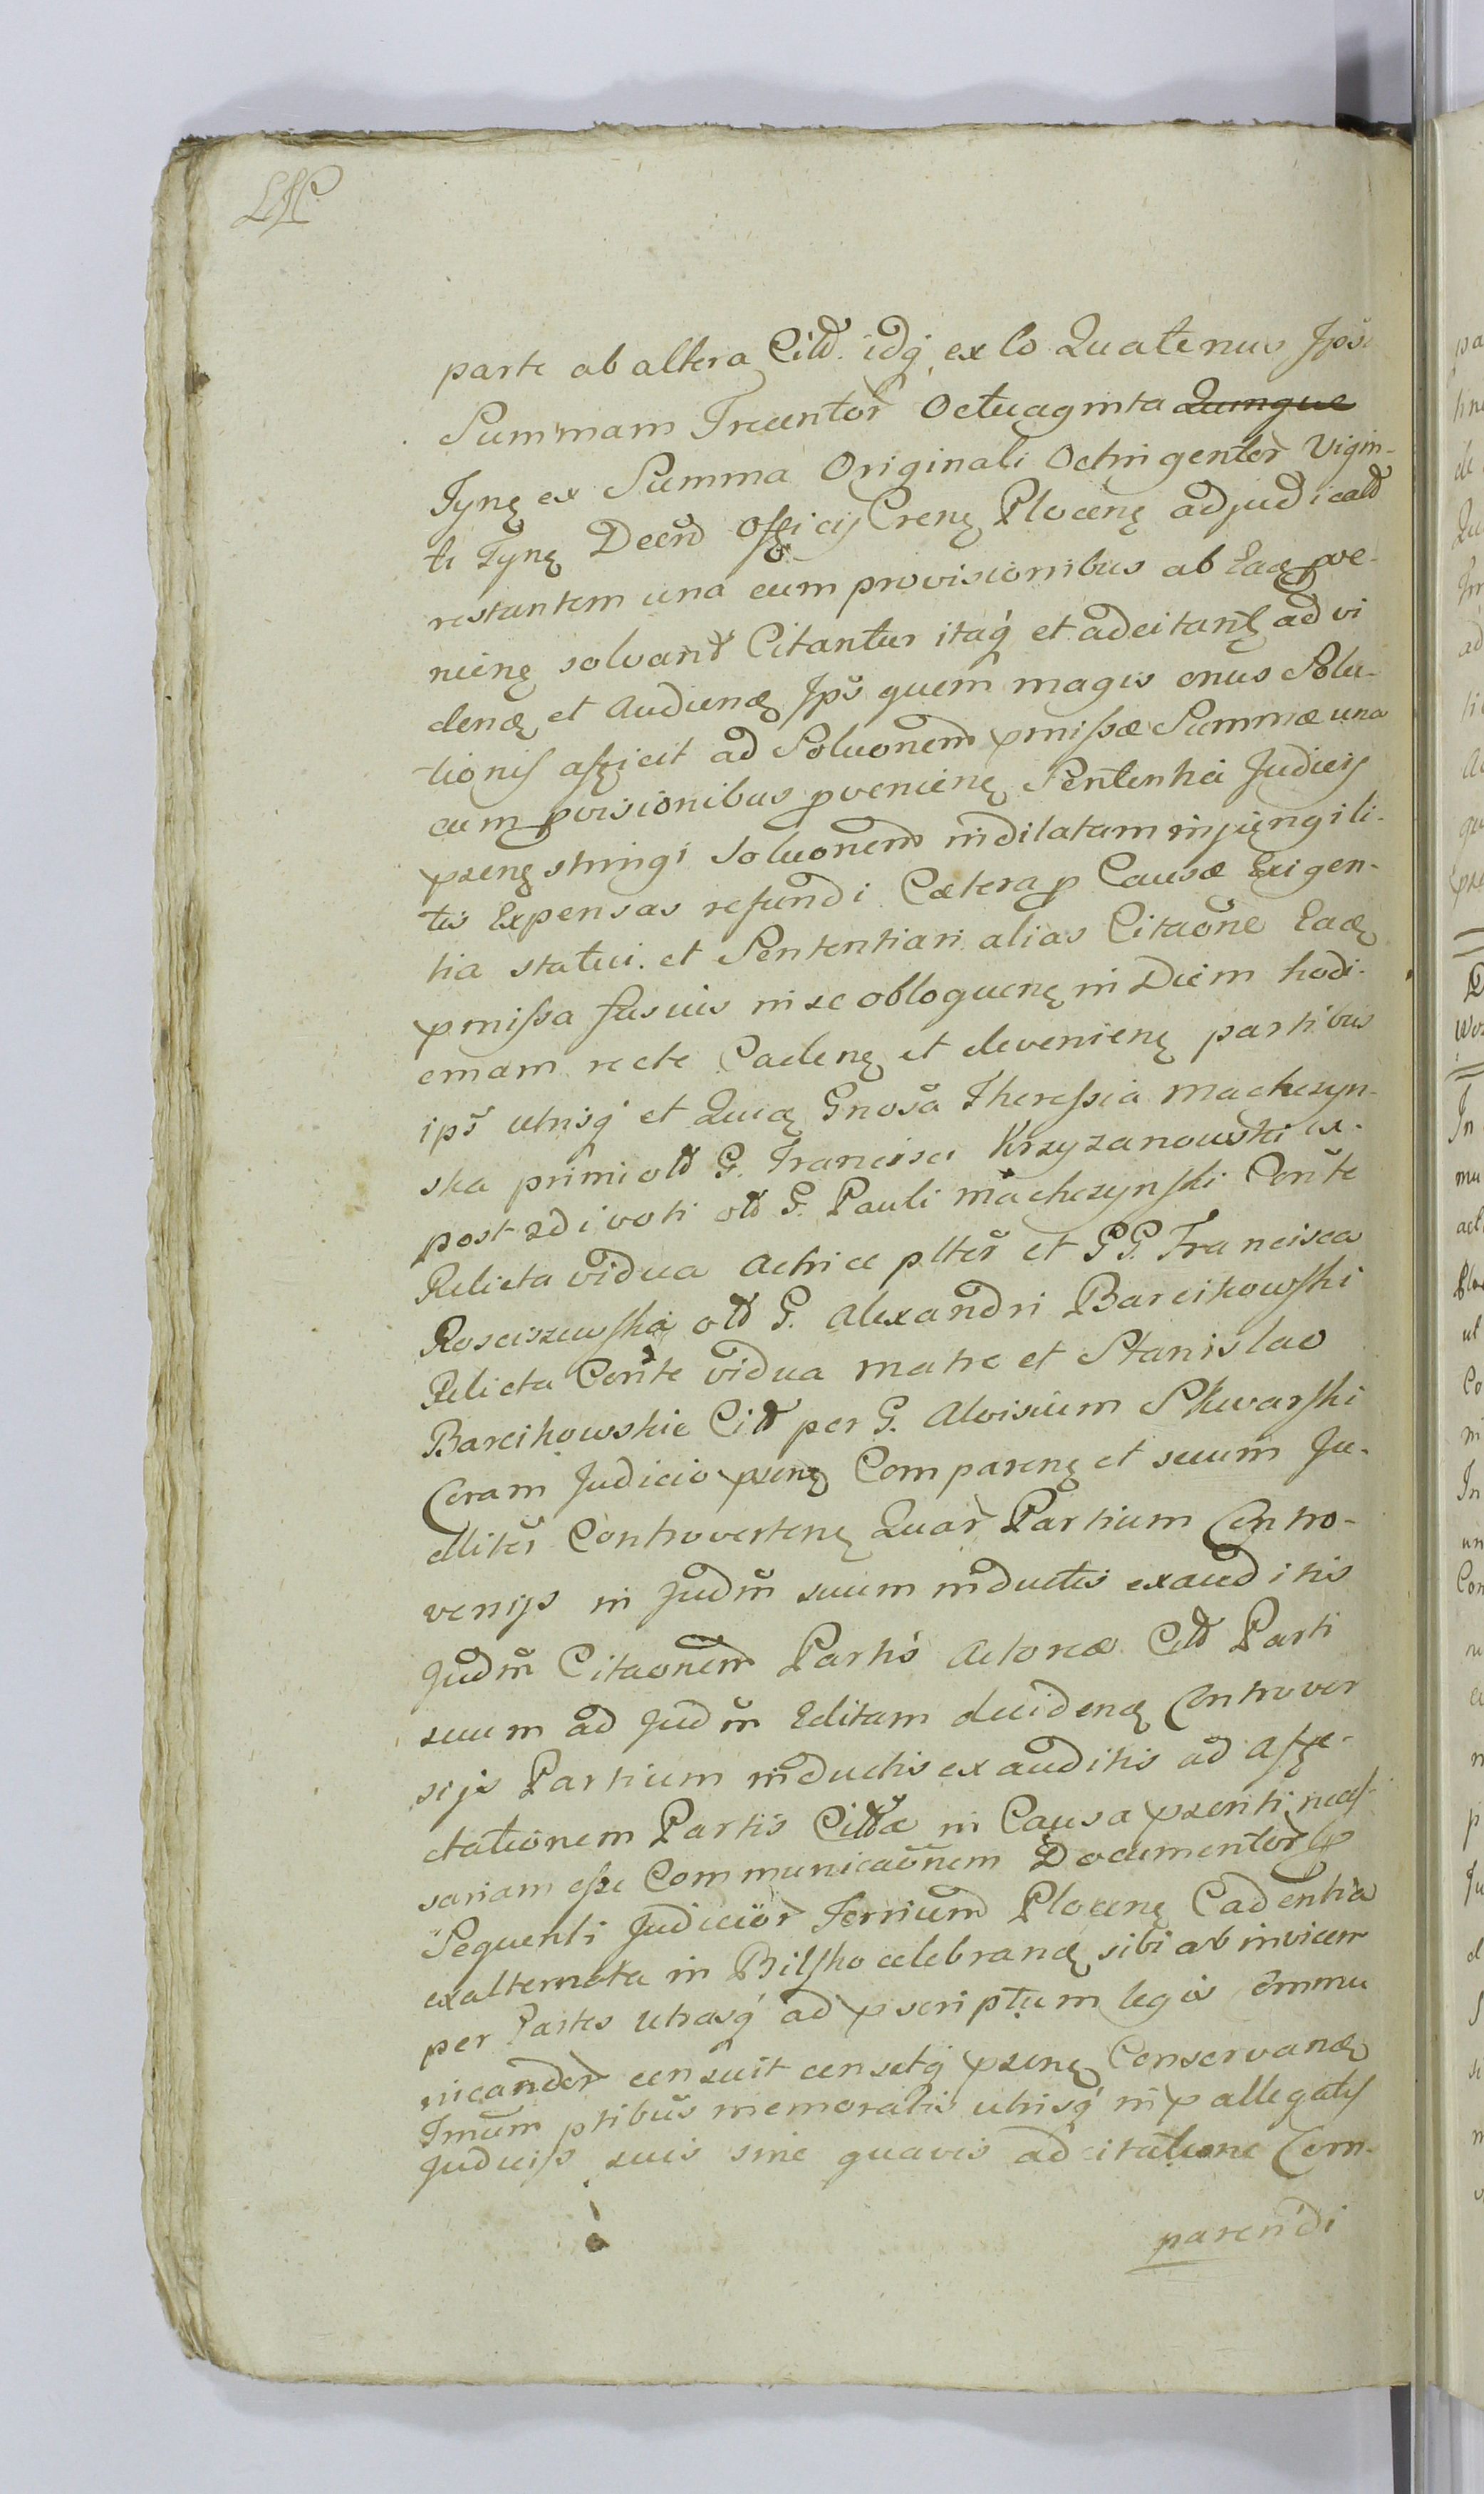 parte ab altera Citt. idq ex lo Quatenus Ipsi
Summam Trecentor Octuaginta Quinque
Tynę ex Summa Originali Octingentor Vigin-
ti Tynę Decrō Officij Crenę Plocenę adjudicatt
restantem una cum provisionibus ab Eadę pve-
nienę solvant Citantur itaq et adcitantę ad vi
dendę et Audiendę Ips quem magis onus Solu-
tionis afficit ad Soluonem pmissæ Summæ una
cum pvisionibus pvenienę Sententia Judicij
psenę stringi Soluonem indilatam injungi li-
tis Expensas refundi Cætera p Causæ Exigen-
tia statui. et Sententiari alias Citaone Eadę
pmissa fusius in se obloquenę in Diem hodi-
ernam recte Cadenę et devenienę partibus
ips utrisq et Quidę Gnosa Theressia Machczyn-
ska primi ott G. Francisci Krzyzanowski ex-
post 2di voti ott G. Pauli Machczynski Conte
Relicta vidua Actrice plter et GG. Francisca
Rosciszewska ott G. Alexandri Barcikowski
Relicta Conte vidua matre et Stanislao
Barcikowskie Citt per G. Aloisium Skwarski
Coram Judicio psenę Comparenę et suum Ju-
dliter Controvertenę Quar Partium Contro-
versijs in Judm suum inductis exauditis
Judm Citaonem Partis Actoreæ Citt Parti
suum ad Judm Editam decidendę Controver
sijs Partium inductis exauditis ad Affe-
ctationem Partis Cittæ in Causa psenti necas-
sariam esse Communicaonem Documentor
Sequenti Judicior Terrium Plocenę Cadentia
exalternata in Bilsko celebrandę sibi ab invicem
per Partes utrasq ad pscriptum legis Commu
nicandor censuit censetq psenę Conservandę
Tmum ptibus memoratis utrisq in p allegatis
Judicijs suis sine quavis adcitatione Com-
parendi